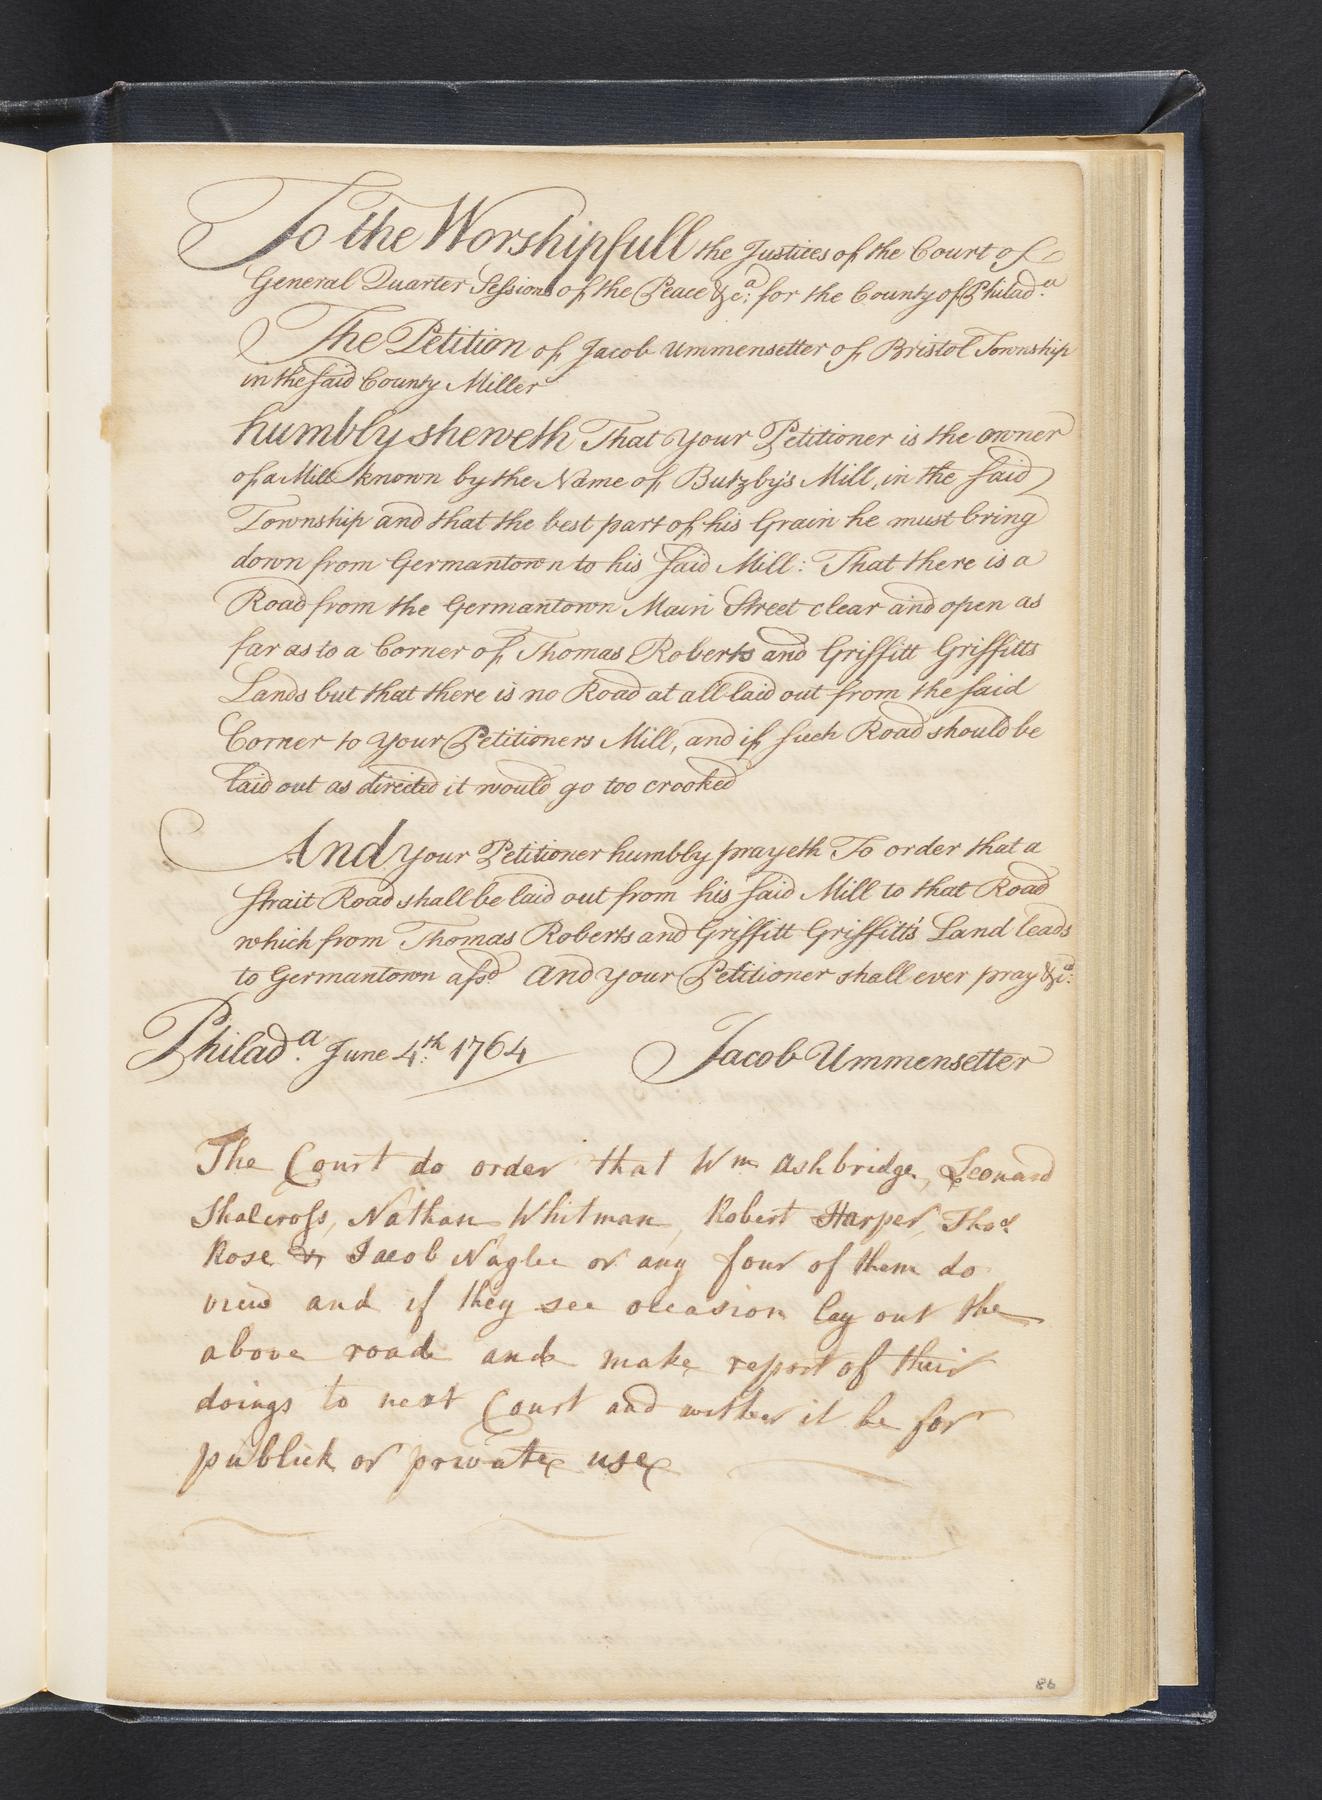 To the Worshipfull the Justices of the Court of
General Quarter Sessions of the Peace &c.a for the County of Philad.a
The Petition of Jacob Ummensetter of Bristol Township
in the said County Miller
humbly sheweth That your Petitioner is the owner
of a Mill known by the Name of Butzby's Mill, in the said
Township and that the best part of his Grain he must bring
down from Germantown to his said Mill: That there is a
Road from the Germantown Main Street clear and open as
far as to a Corner of Thomas Roberts and Griffitt Griffitts
Lands but that there is no Road at all laid out from the said
Corner to your Petitioners Mill, and if such Road should be
laid out as directed it would go too crooked
And your Petitioner humbly prayeth To order that a
strait Road shall be laid out from his said Mill to that Road
which from Thomas Roberts and Griffitt Griffitt's Land leads
to Germantown afsd. And your Petitioner shall ever pray &c.a
Philad.a June 4.th 1764 Jacob Ummensetter
The Court do order that Wm Ashbridge, Leonard
Shalcross, Nathan Whitman, Robert Harper, Thos.
Rose & Jacob Naglee or any four of them do
view and if they see occasion lay out the
above road and make report of their
doings to next Court and wether it be for
publick or private use
86